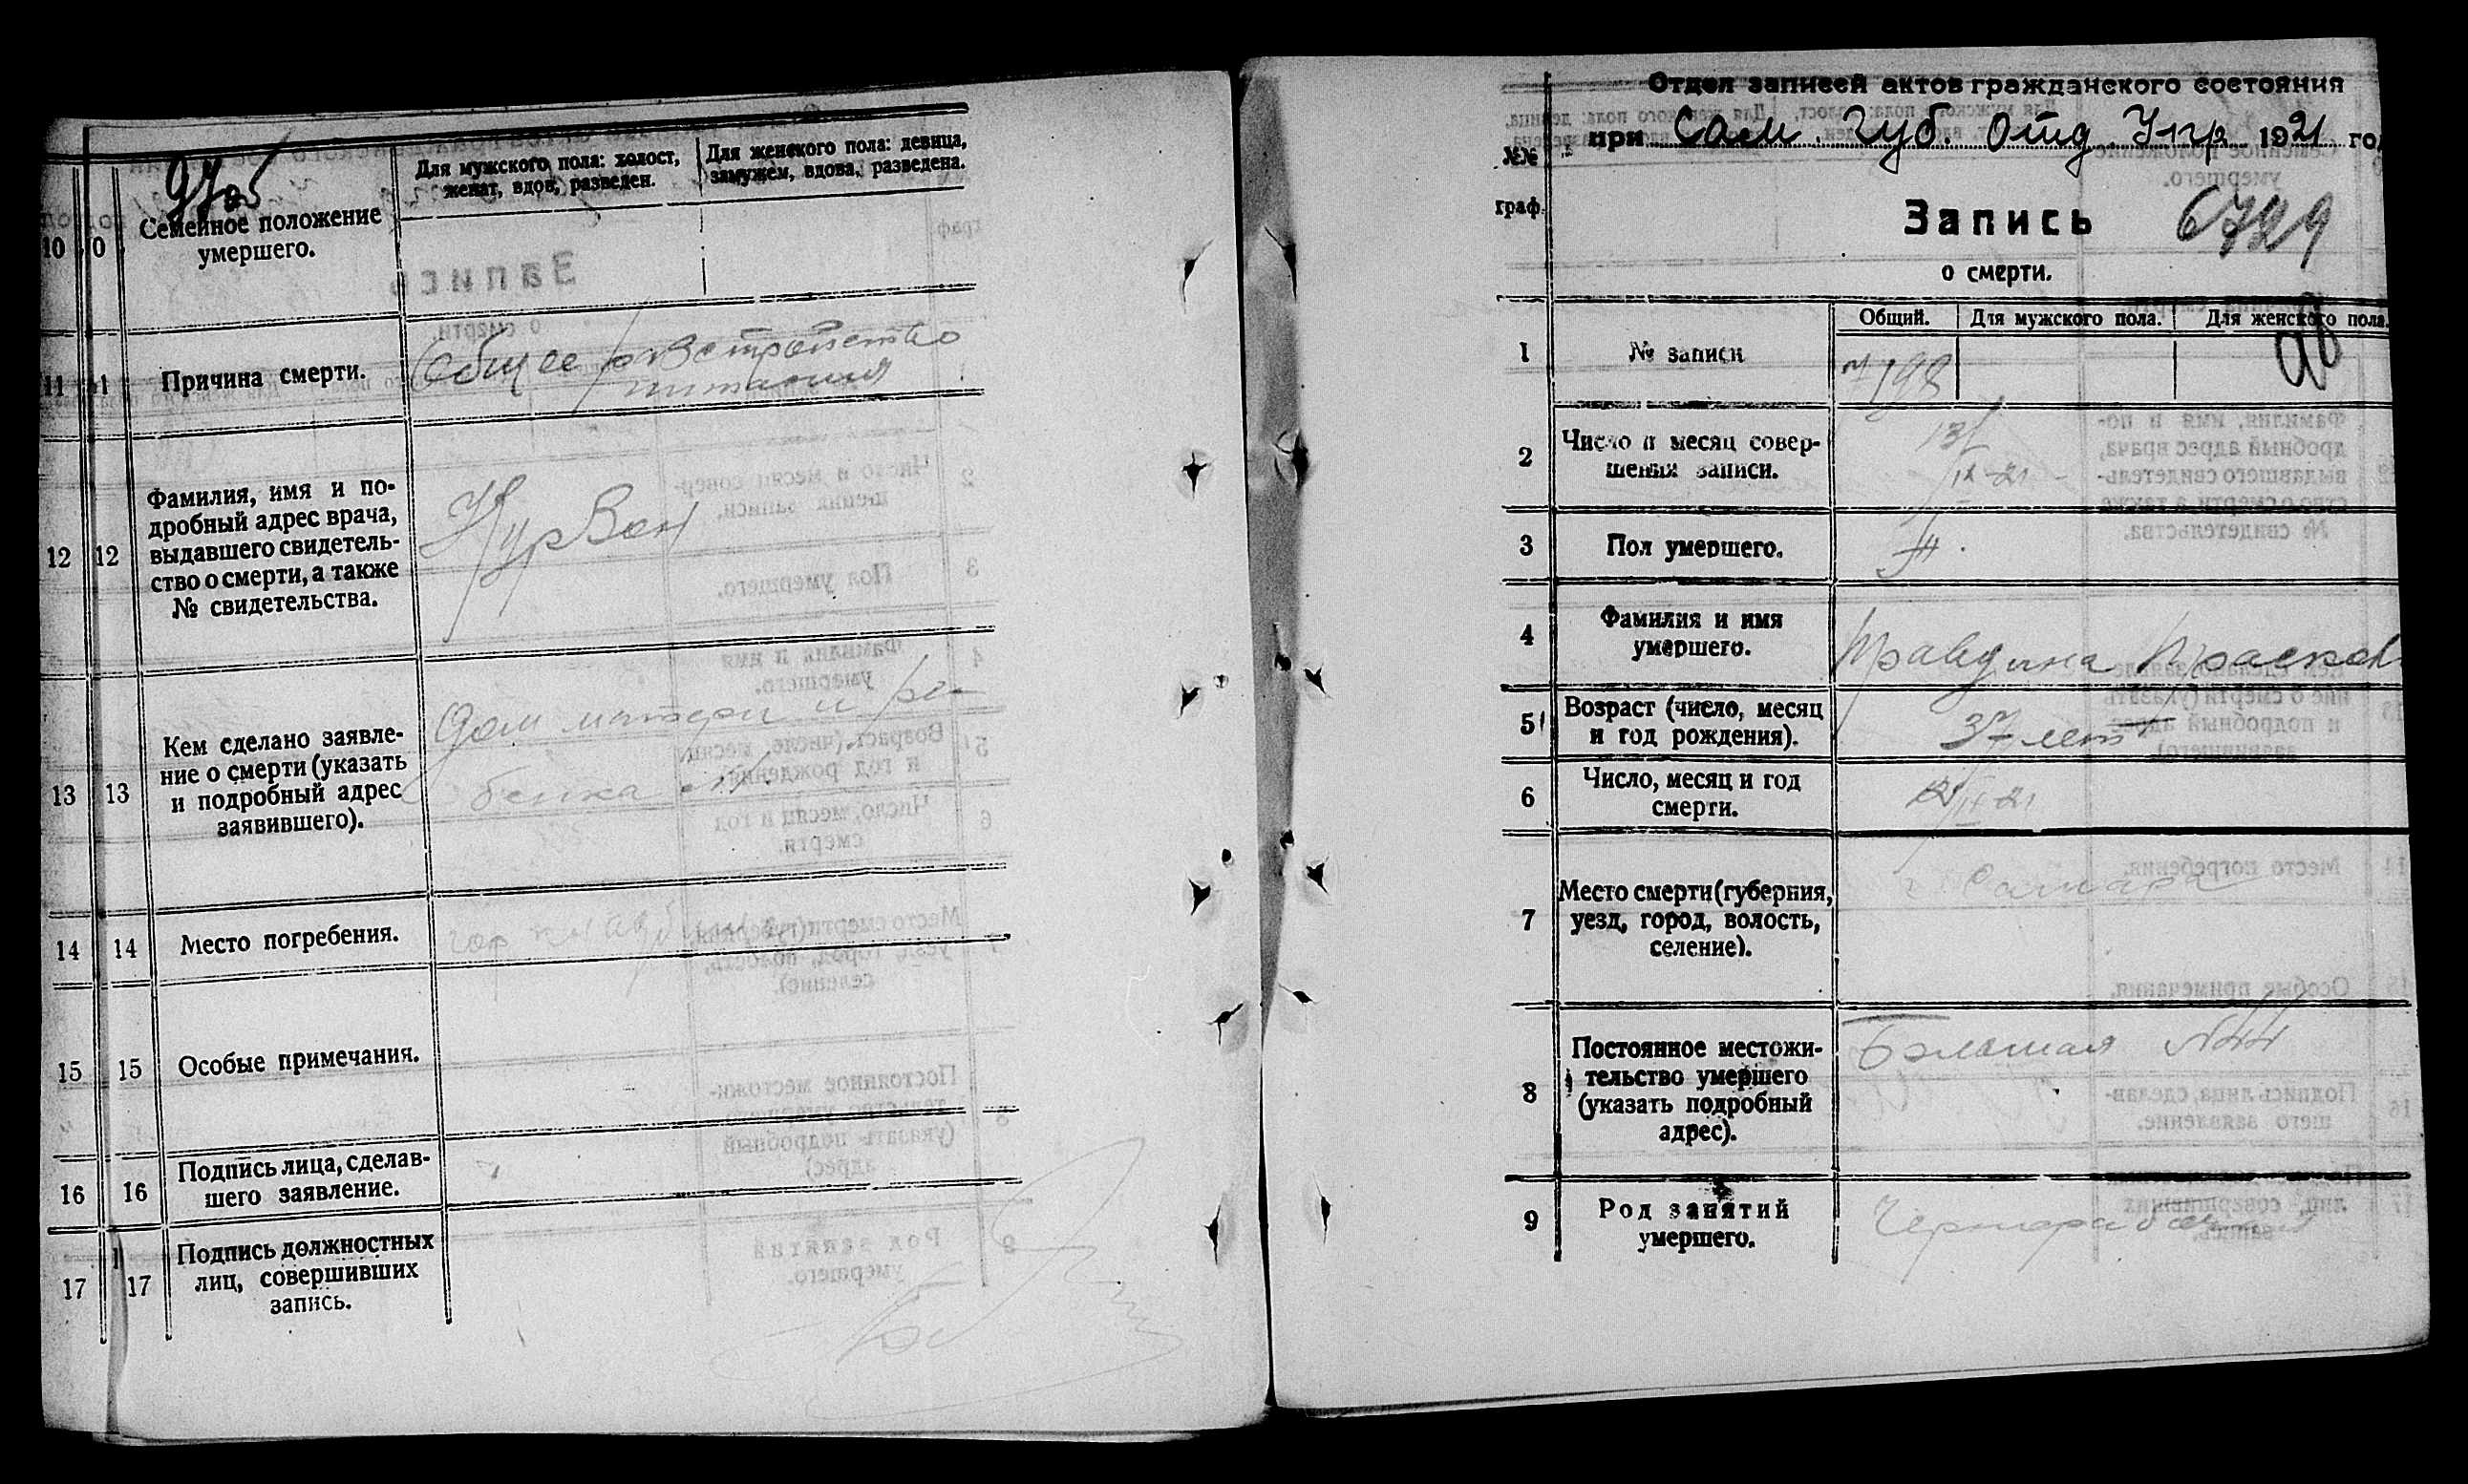 9706
10
10
Семейное положение
умершего.
Для мужского пола: холост,
женат, вдов, разведен.
Для женского пола: девица,
замужем, вдова, разведена.
11
Причина смерти.
Общее расстройство
питания
12
12
Фамилия, имя и по-
дробный адрес врача,
выдавшего свидетель-
ство о смерти, а также
№ свидетельства.
13
13
Кем сделано заявле-
ние о смерти (указать
и подробный адрес
заявившего).
Дом матери и ре-
бенка
14
14
Место погребения.
гор кладб
15
15
Особые примечания.
16
16
Подпись лица, сделав-
шего заявление.
17
17
Подпись должностных
лиц, совершивших
запись.
Отдел записей актов гражданского состояния
при Сам. Губ. Отд. Упр 1921 го
№№
граф.
Запись
о смерти.
6729
1
№ записи
Общий.
Для мужского пола.
Для женского пола.
198
2
Число и месяц совер-
шения записи.
13/IX-21
3
Пол умершего.
ж.
4
Фамилия и имя
умершего.
Правдина Прасков
5
Возраст (число, месяц
и год рождения).
лет
6
Число, месяц и год
смерти.
12/IX-21
7
Место смерти (губерния,
уезд, город, волость,
селение).
г. Самара
8
Постоянное местожи-
тельство умершего
(указать подробный
адрес).
9
Род занятий
умершего.
Чернорабочая